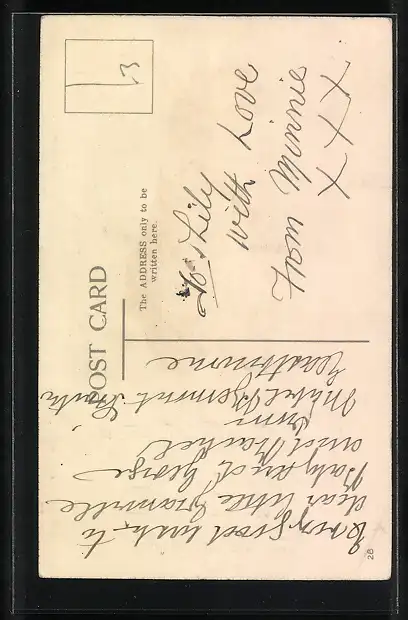 POST CARD
The ADDRESS only to be
written here.
To Lily
with Love
From Minnie
X X X
Every good wish to
dear little Granville
Baby and George
and Rachel
from
Mabel
Eastbourne
3
28